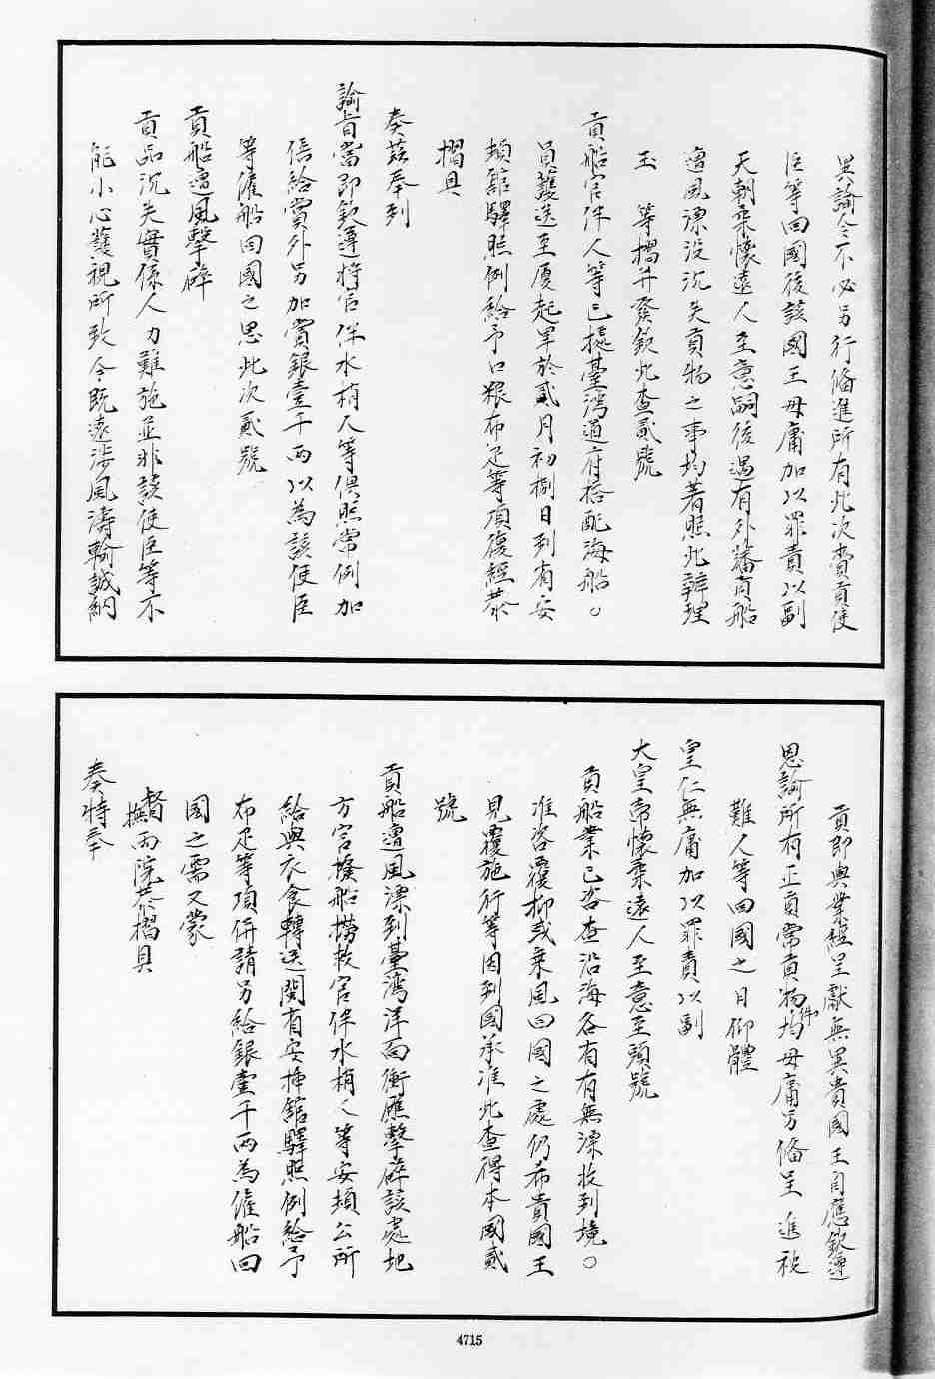 異諭令不必另行備進所有此次賫貢使
臣等回國後該國王毋庸加以罪責以副
天朝柔懷遠人至意嗣後遇有外藩貢船
遭風漂没沉失貢物之事均著照此辦理
玉　等摺并發欽此查貳號
貢船官伴人等已據臺灣道府搭配海船。
員護送至厦起旱於貳月初捌日到省安
頓館驛照例給予口糧布疋等項復經恭
摺具
奏茲奉到
諭旨當即欽遵將官伴水梢人等俱照常例加
倍給賞外另加賞銀壹千兩以為該使臣
等雇船回國之思此次貳號
貢船遭風擊碎
貢品沉失實係人力難施並非該使臣等不
能小心護視所致今既遠涉風濤輸誠納
貢即與業經呈獻無異貴國王自應欽遵
恩諭所有正貢常貢物件均毋庸另備呈進被
難人等回國之日仰體
皇仁無庸加以罪責以副
大皇帝懷柔遠人至意至頭號
貢船業已咨查沿海各有有無漂收到境。
准咨覆抑或乘風回國之處仍希貴國王
見覆施行等因到國承准此查得本國貳
號
貢船遭風漂到臺灣洋面衝礁擊碎該處地
方官撥船撈救官伴水梢之等安頓公所
給與衣食轉送閩省安插館驛照例給予
布疋等項併請另給銀壹千兩為雇船回
國之需又蒙
督撫兩院恭摺具
奏特奉
4715